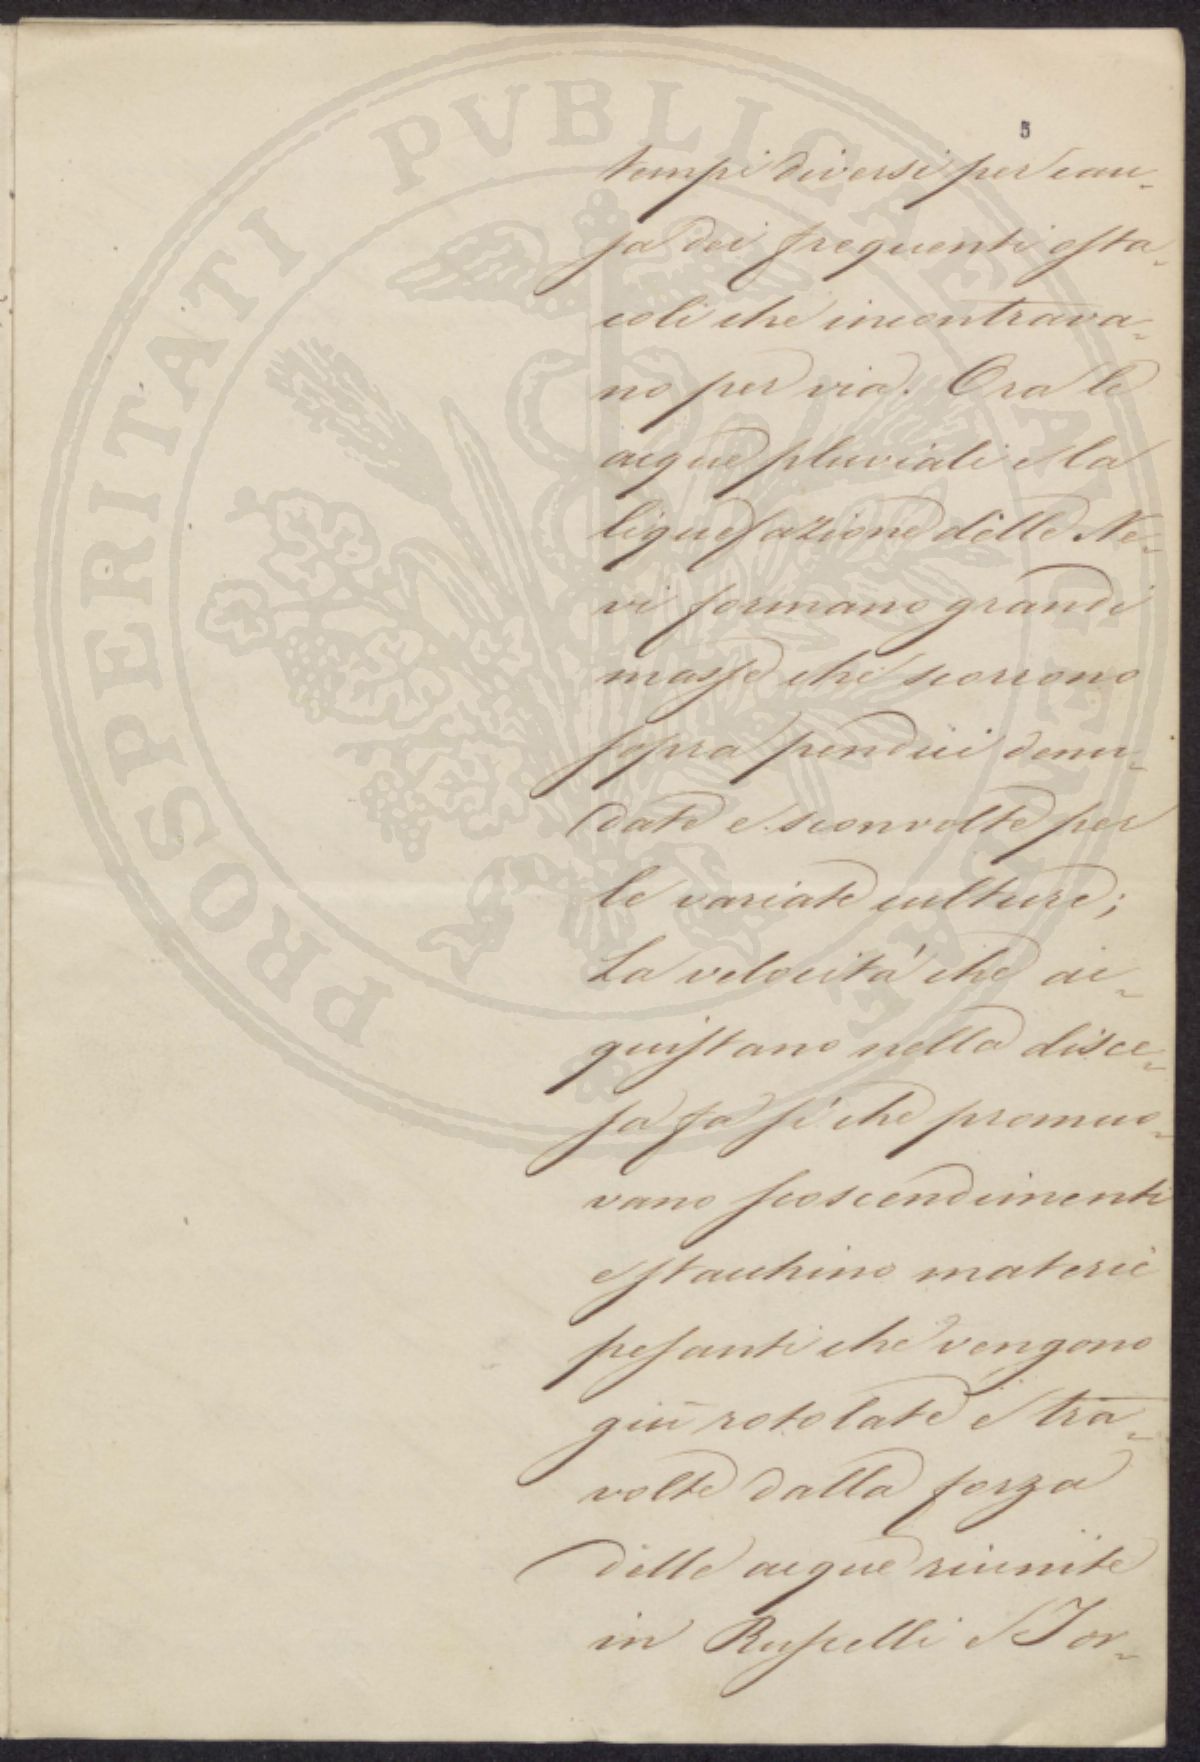 PROSPERITATI PVBLICAE AVGENDAE
5
tempi diversi per cau-
sa dei frequenti osta-
coli che incontrava-
no per via. Ora le
acque pluviali e la
liquefazione delle Ne-
vi formano grandi
masse che scorrono
sopra pendici denu-
date e sconvolte per
le variate culture;
La velocità che ac-
quistano nella disce-
sa fa sì che promuo-
vano scoscendimenti
e stacchino materie
pesanti che vengono
giù rotolate e tra-
volte dalla forza
delle acque riunite
in Ruscelli e Tor-